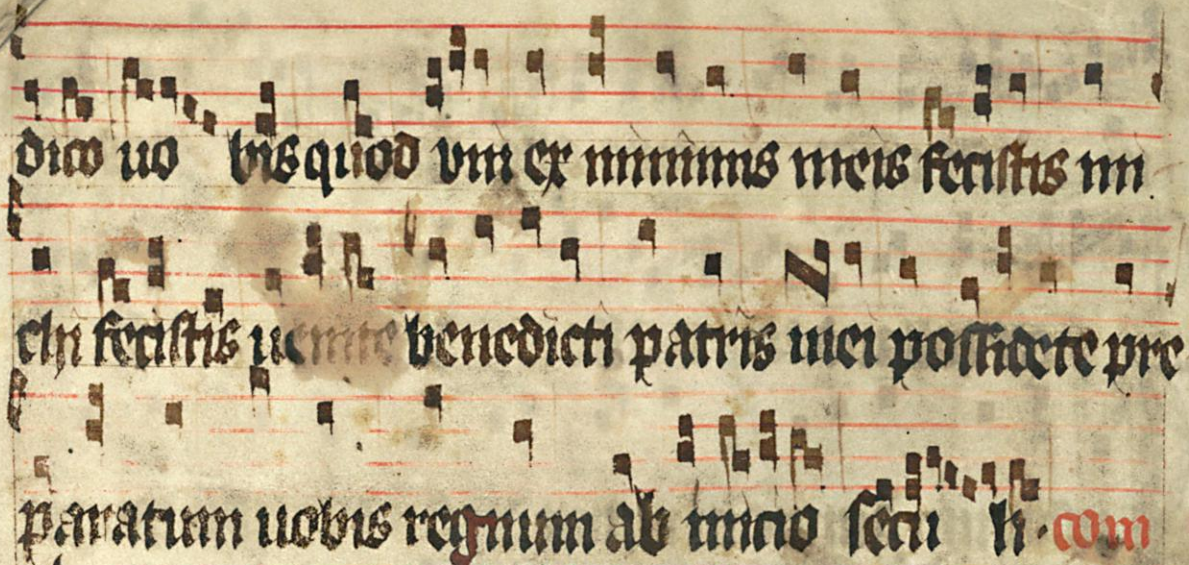 dico uo bis quod vni ex minimis meis fecistis mi
chi fecistis uenite benedicti patris mei possidete pre
paratum uobis regnum ab inicio secu li. com